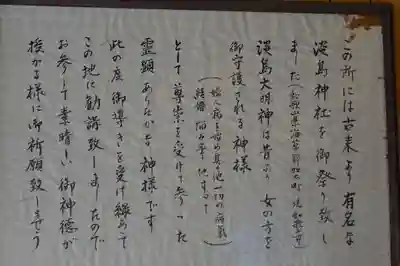 この所には古来より有名な
淡島神社を御祭り致し
ました（和歌山県海草郡加太町
淡島大明神は昔から女の方を
御守護される神様
（婦人病を始め其の他一切の病気
として尊崇を受けて参った
霊顕あらたかな神様です
此の度御導きを受け縁あって
この地に勧請致しましたので
お参りして素晴しい御神徳が
授かる様に御祈願致しましょう